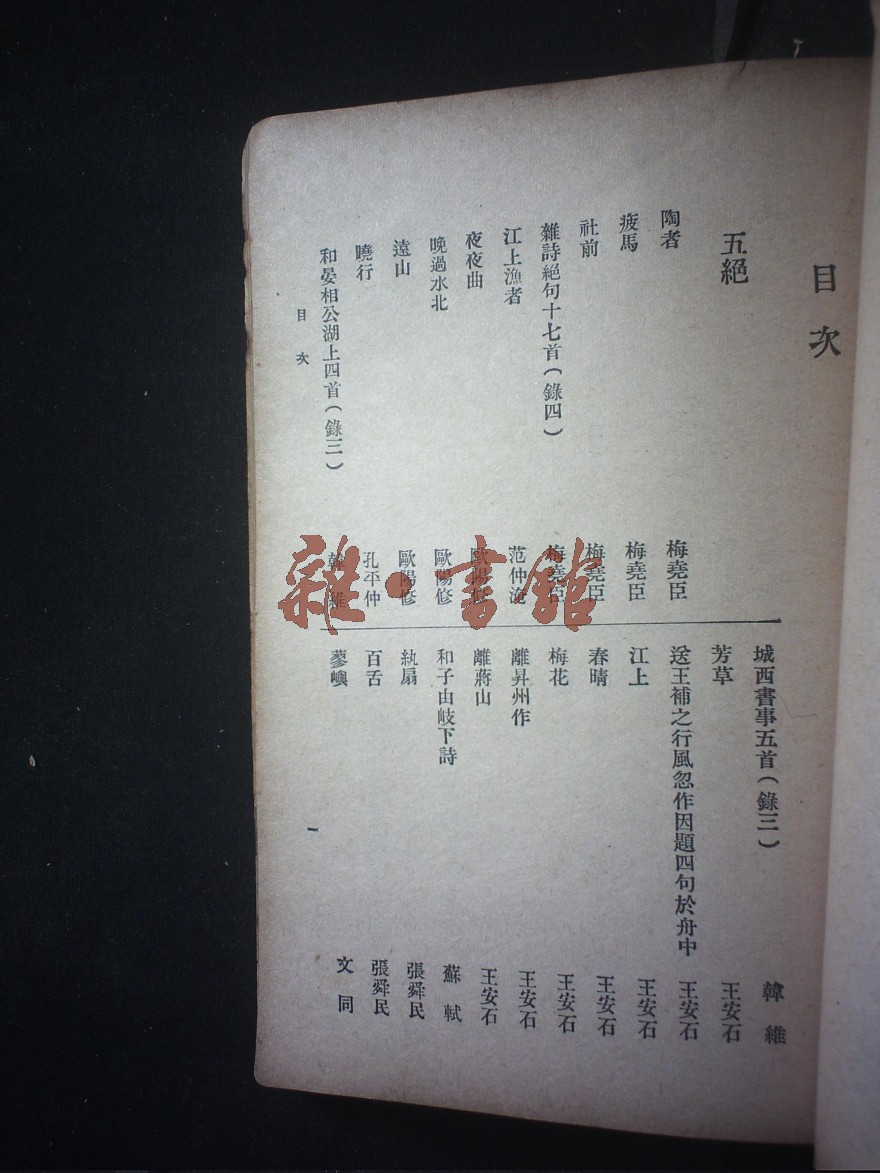 目次
五絕
陶者 梅堯臣
疲馬 梅堯臣
社前 梅堯臣
雜詩絕句十七首（錄四） 梅堯臣
江上漁者 范仲淹
夜夜曲 歐陽修
晚過水北 歐陽修
遠山 歐陽修
曉行 孔平仲
和晏相公湖上四首（錄三） 韓維
城西書事五首（錄三） 韓維
芳草 王安石
送王補之行風忽作因題四句於舟中 王安石
江上 王安石
春晴 王安石
梅花 王安石
離昇州作 王安石
離蔣山 王安石
和子由岐下詩 蘇軾
紈扇 張舜民
百舌 張舜民
蓼嶼 文同
目次
一
雜·書館